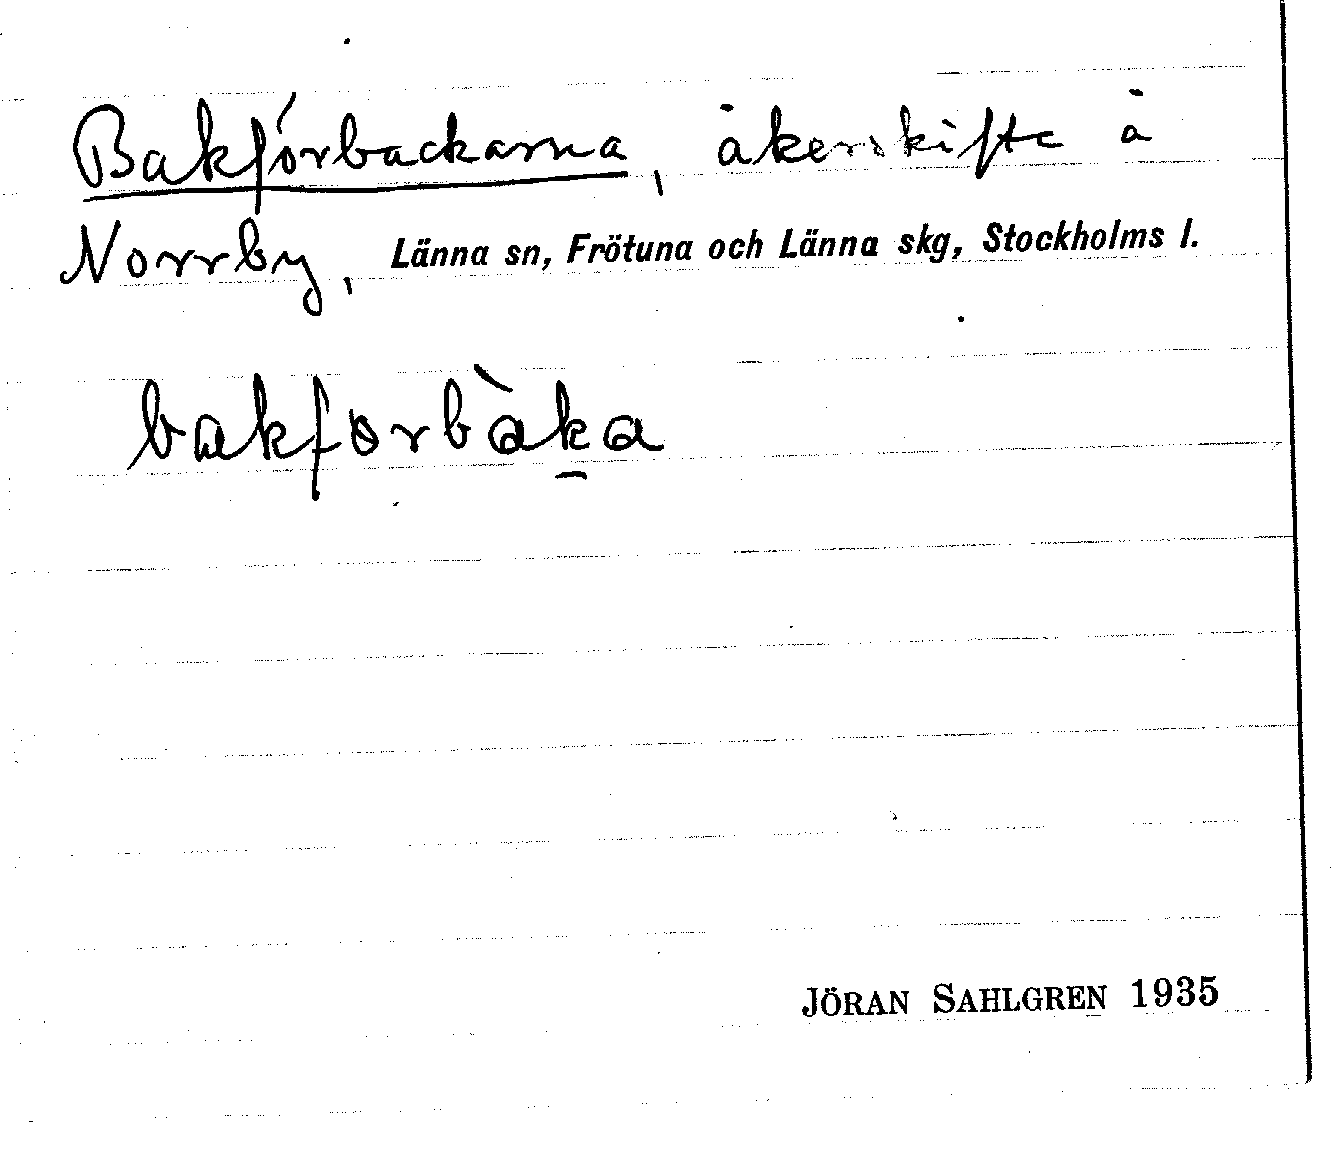 Bakförbackarna, åkerskifte å
Norrby, Länna sn, Frötuna och Länna skg, Stockholms l.
bakforbàka
JÖRAN SAHLGREN 1935